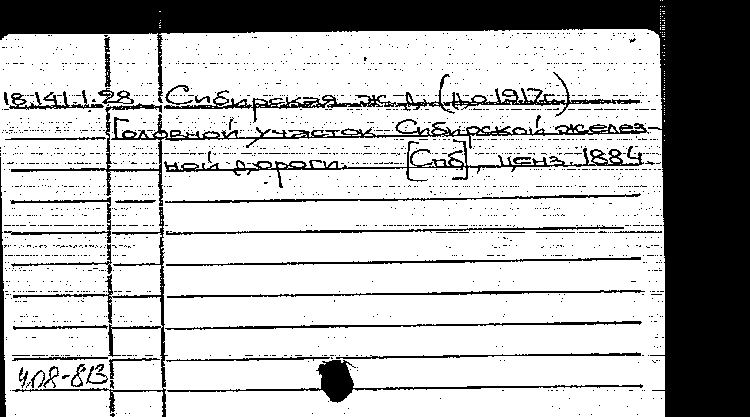 18.141.1.28 Сибирская ж. д. (до 1917г.)
Головной участок Сибирской желез-
ной дороги. [Спб], ценз. 1884.
408-813